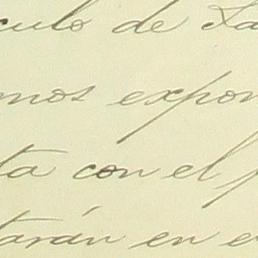 culo de Sa
mos expon
ta con el p
tarán en e